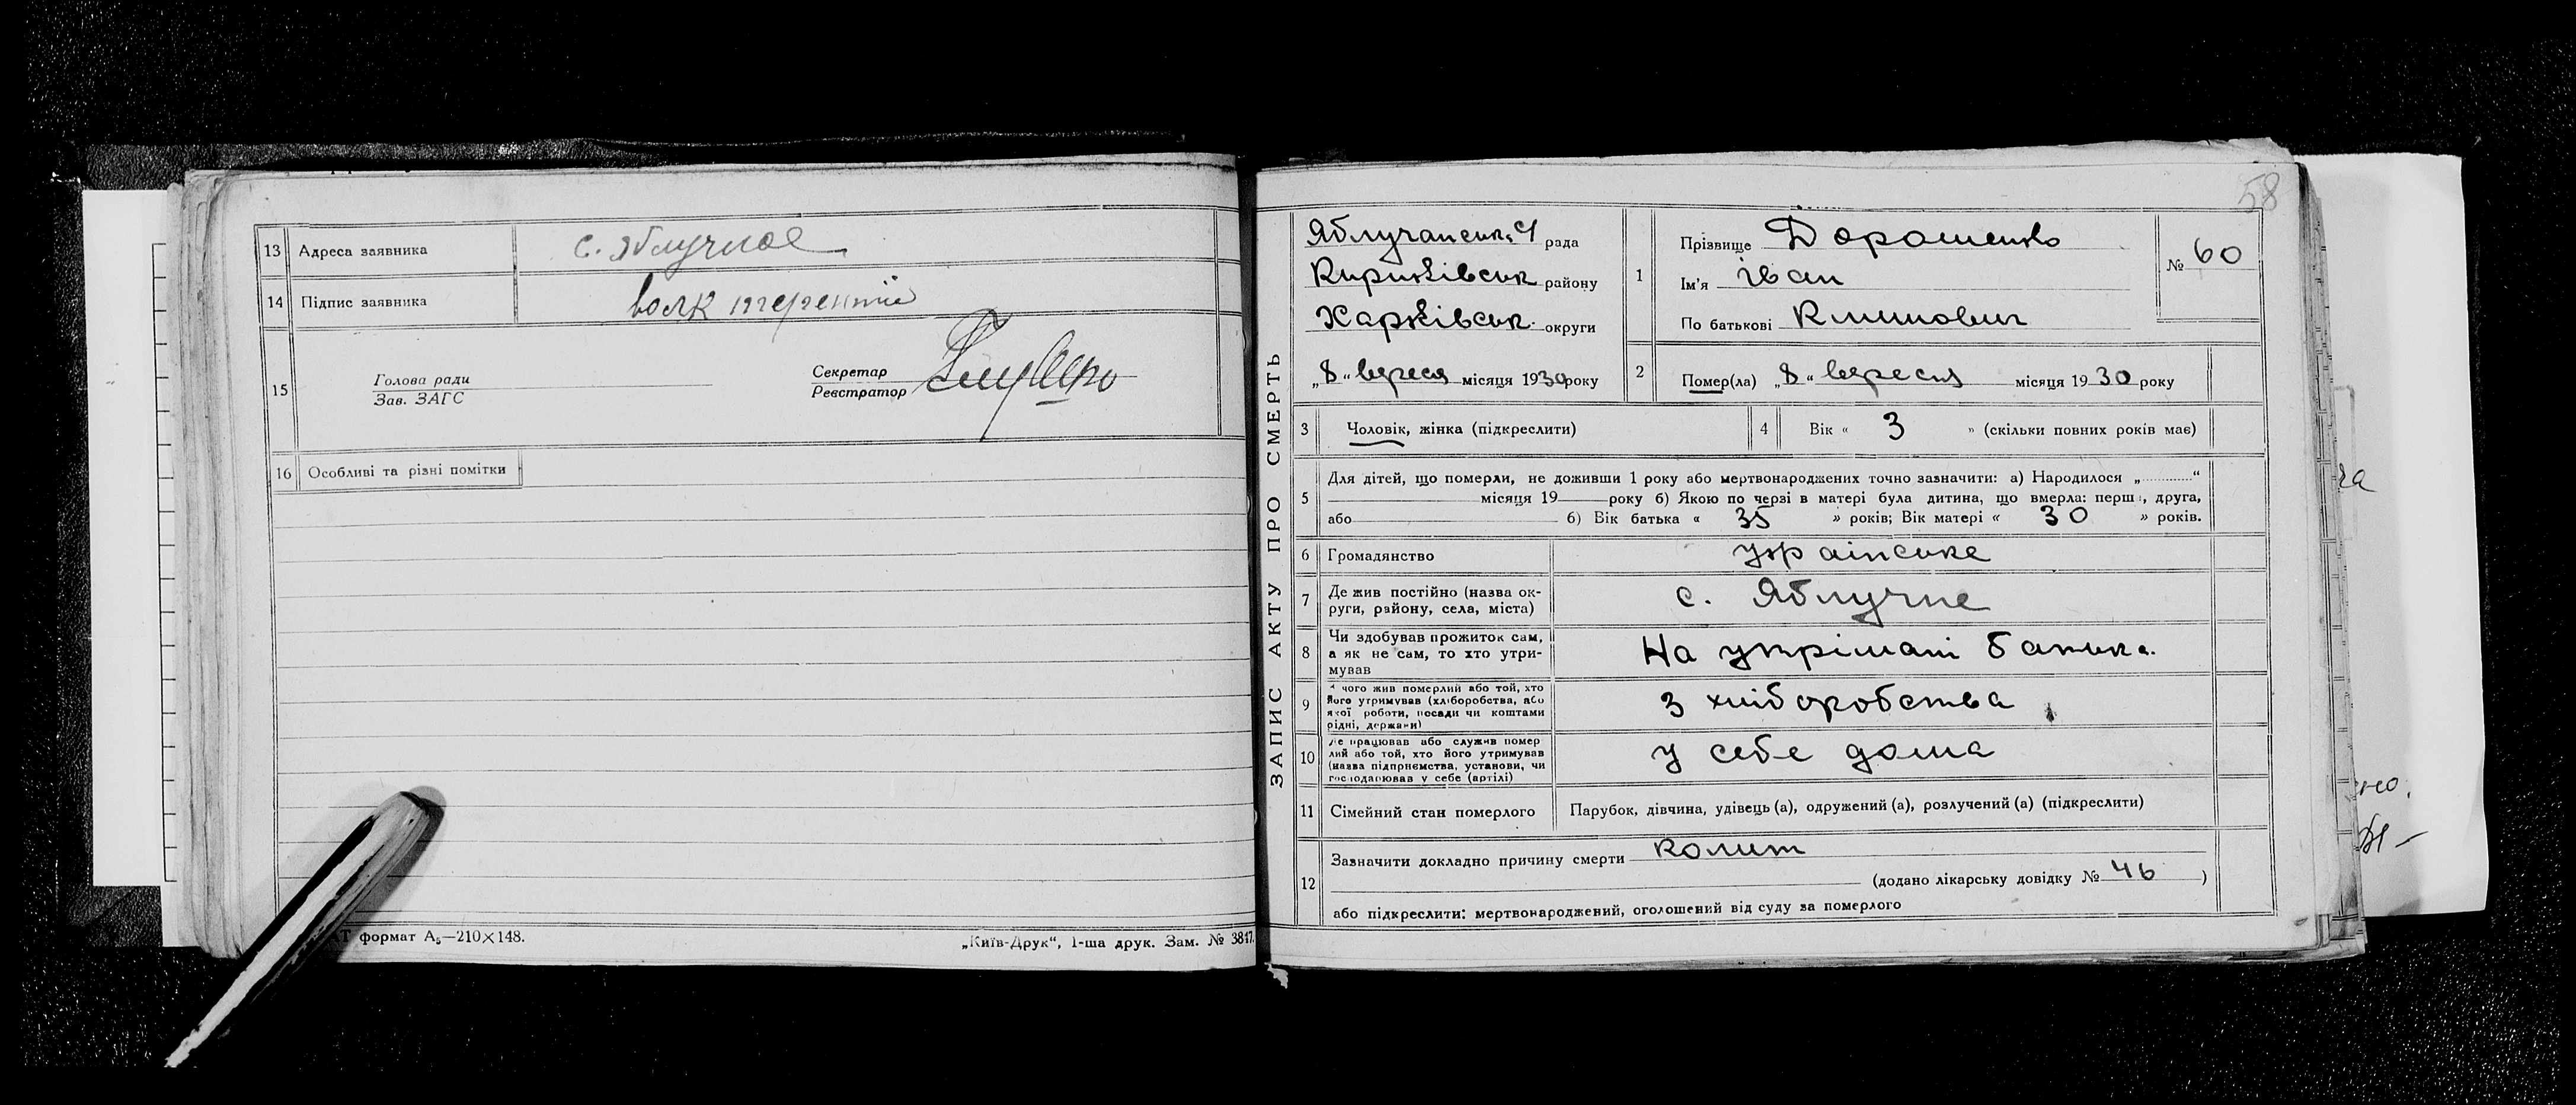 13 Адреса заявника с. Яблучное
14 Підпис заявника волк терентий
15 Голова ради
Зав. ЗАГС
Секретар
Реєстратор
16 Особливі та різні помітки
формат А₅—210×148.
„Київ-Друк“, 1-ша друк. Зам. № 3817.
58
ЗАПИС АКТУ ПРО СМЕРТЬ
Яблучанськ. рада
Кириківськ району
Харківськ. округи
„8“ вересн місяця 1930 року
1 Прізвище Дорошенко
Ім'я Іван
По батькові Климович
№ 60
2 Помер(ла) „8“ вересня місяця 1930 року
3 Чоловік, жінка (підкреслити)
4 Вік « 3 » (скільки повних років має)
5 Для дітей, що померли, не доживши 1 року або мертвонароджених точно зазначити: а) Народилося „............“
місяця 19 року б) Якою по черзі в матері була дитина, що вмерла: перш , друга,
або б) Вік батька « 35 » років; Вік матері « 30 » років.
6 Громадянство українське
7 Де жив постійно (назва ок-
руги, району, села, міста) с. Яблучне
8 Чи здобував прожиток сам,
а як не сам, то хто утри-
мував На утрімані батька.
9 чого жив померлий або той, хто
його утримував (хліборобства, або
якої роботи, посади чи коштами
рідні, держави) з хліборобства
10 Де працював або служив помер
лий або той, хто його утримував
(назва підприємства, установи, чи
господарював у себе (артілі) у себе дома
11 Сімейний стан померлого Парубок, дівчина, удівець (а), одружений (а), розлучений (а) (підкреслити)
12 Зазначити докладно причину смерти колит
(додано лікарську довідку № 46 )
або підкреслити: мертвонароджений, оголошений від суду за померлого